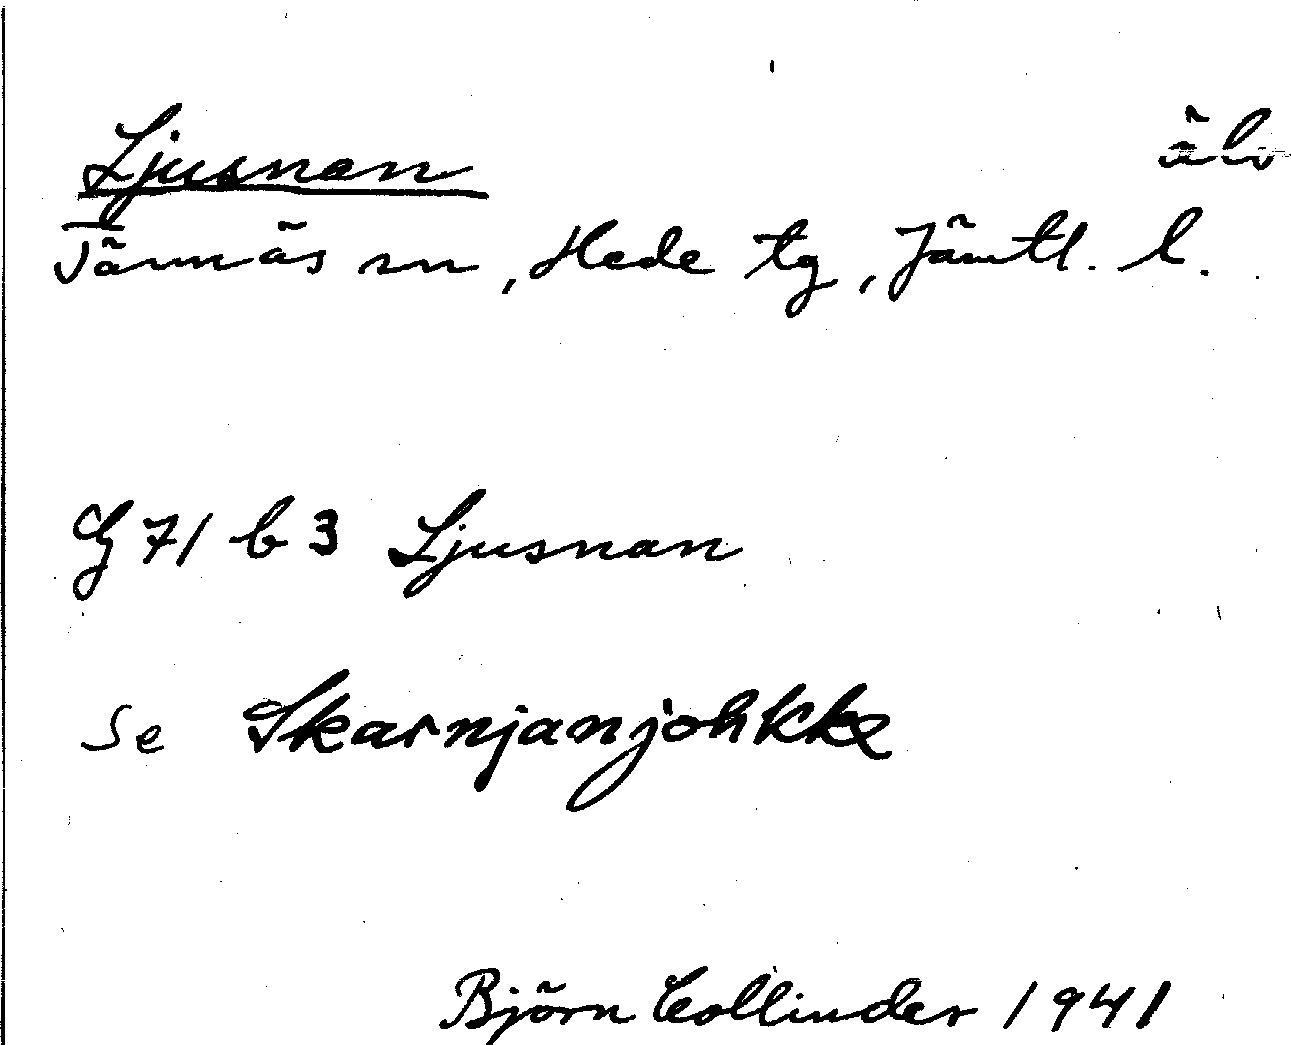 Ljusnan älv
Tännäs sn, Hede tg, Jämtl. l.
G 71 b 3 Ljusnan
Se Skarnjanjohkke
Björn Collinder 1941